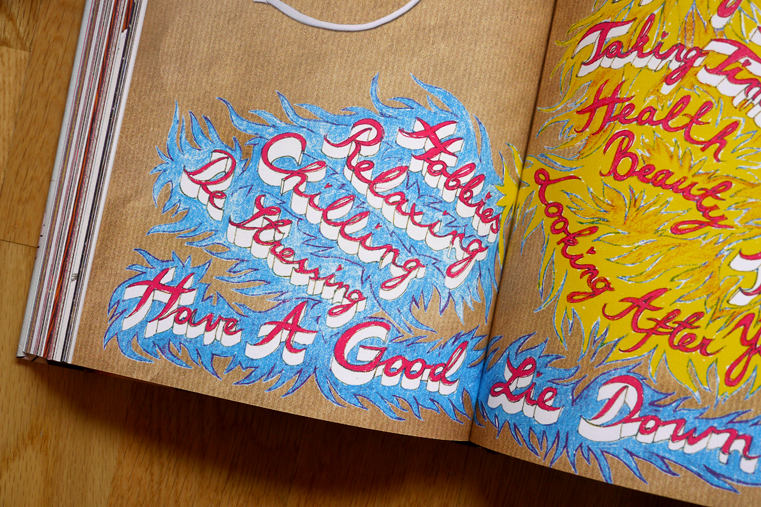 Hobbies
Relaxing
Chilling
De Stressing
Have A Good
Taking
Health
Beauty
Looking After
Lie Down